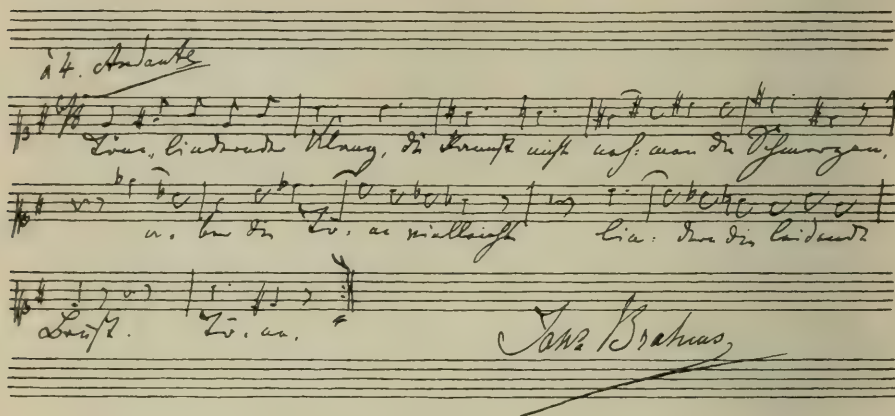 à 4. Andante
Töne, lindernder Klang, du kannst nicht neh: men die Schmerzen,
a. ber die Tö. ne vielleicht lin: dern die leidende
Brust. Tö. ne.
Johs Brahms